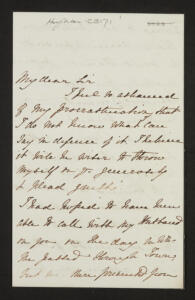 My dear Sir
I feel so ashamed
of my procrastination that
I do not know what I can
say in defence of it I believe
it will be wiser to throw
myself on yr generosity
to plead guilty
I had hoped to have been
able to call with my Husband
on you on the day in
we passed through Town
but we were prevented from